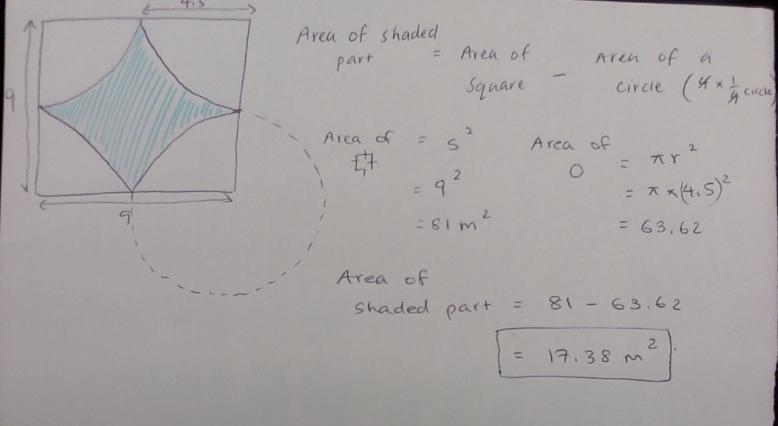 4.5
9
9
Area of shaded part = Area of Square - Area of a circle (4 × 1/4 circle
Area of □ = s²
= 9²
= 81 m²
Area of ○ = πr²
= π × (4.5)²
= 63.62
Area of
shaded part = 81 - 63.62
= 17.38 m²